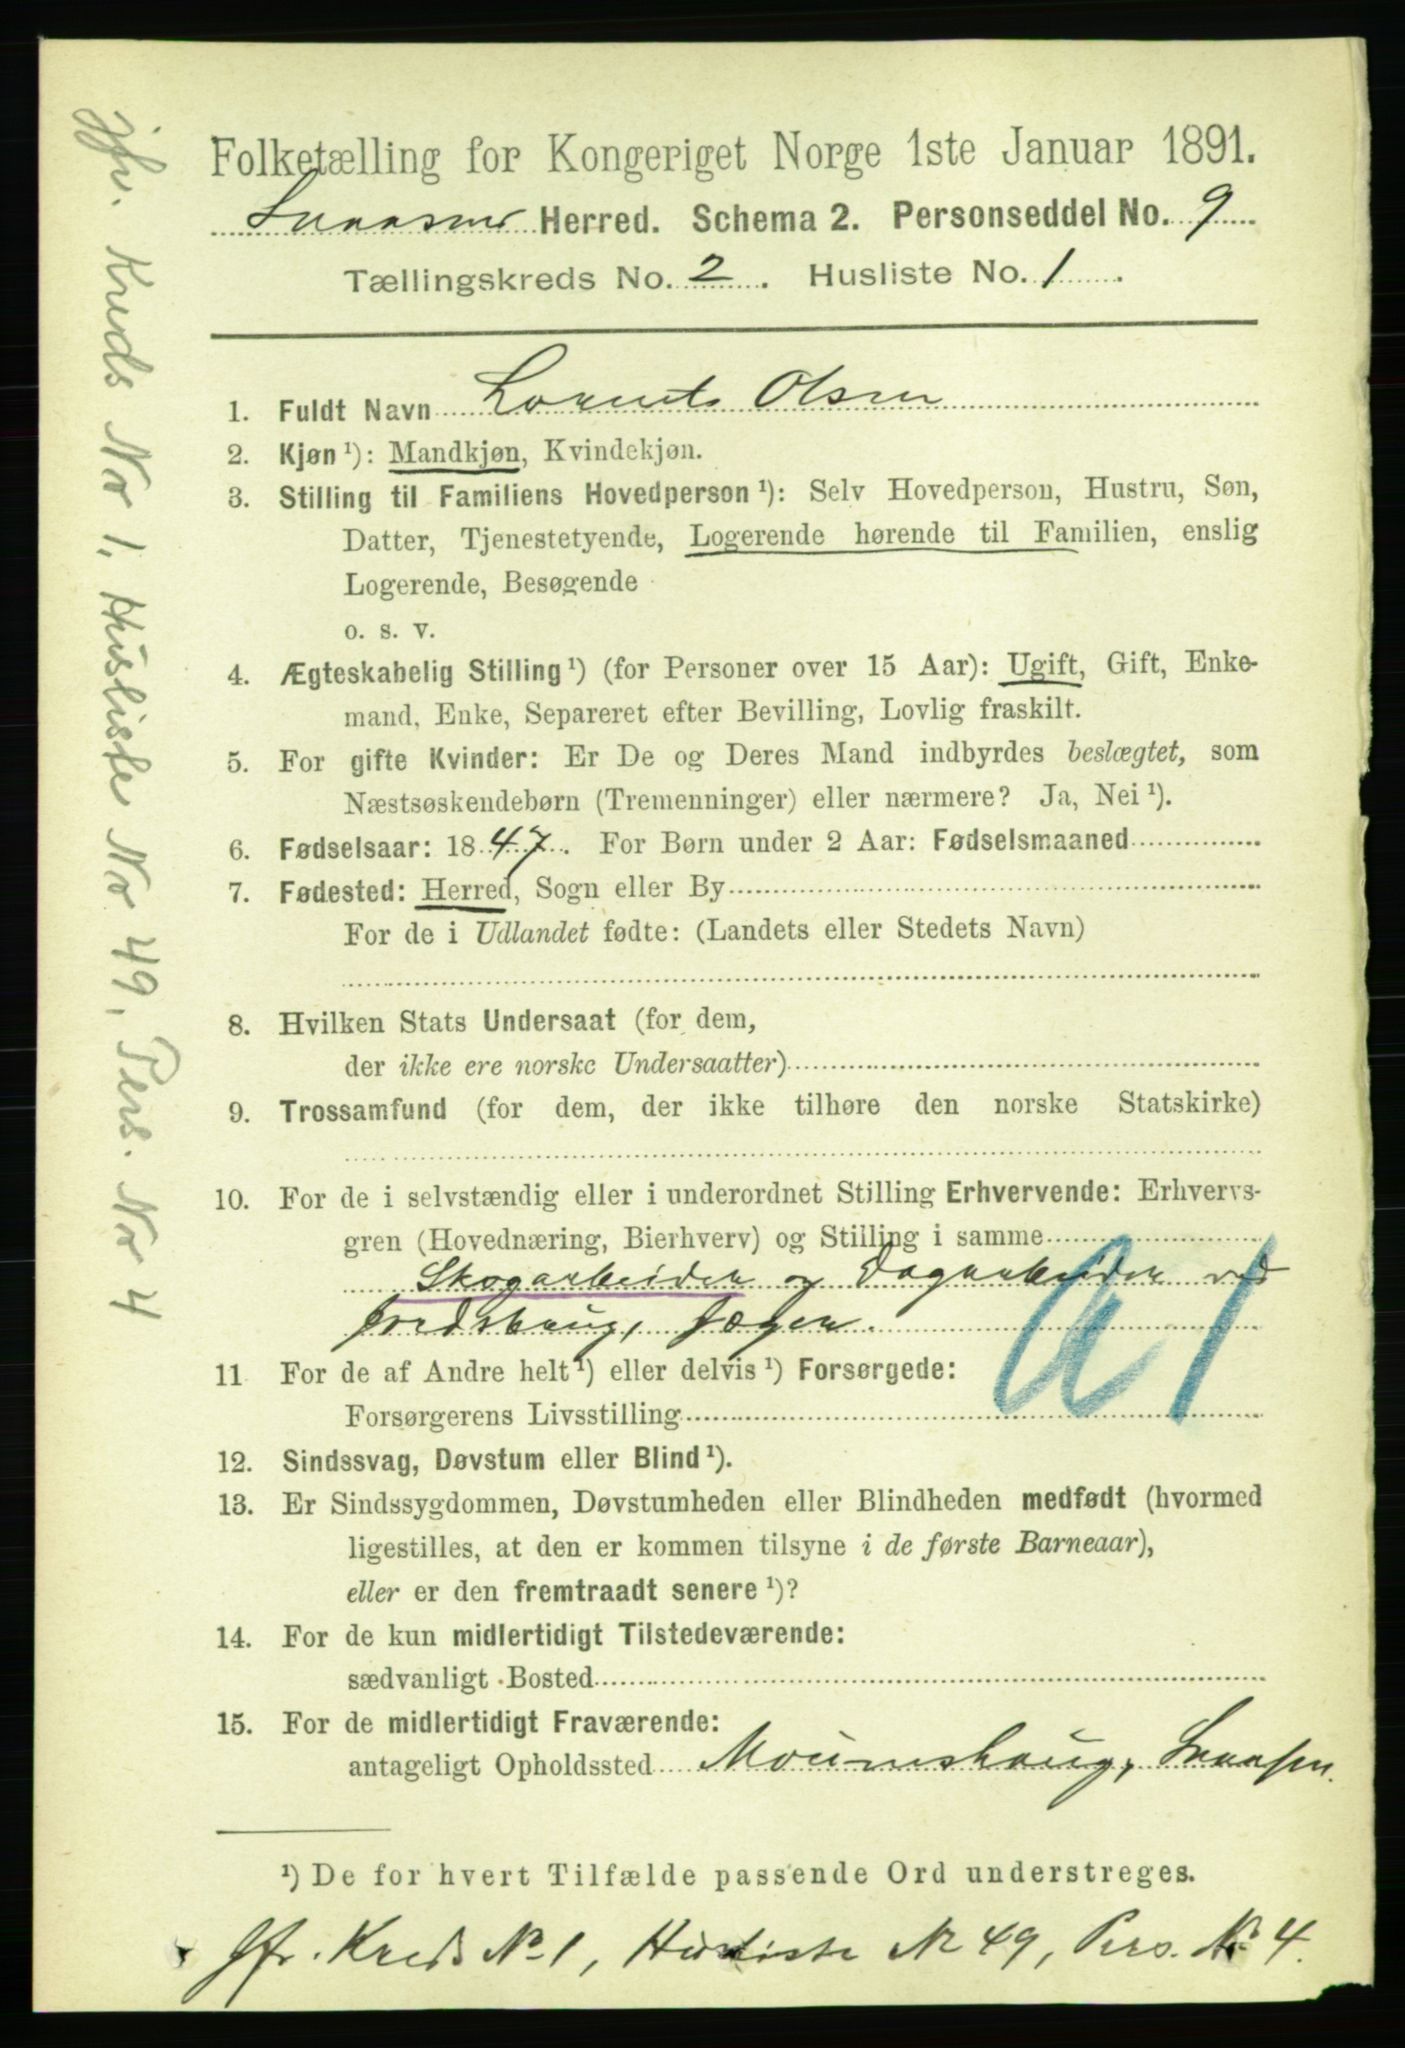 Folketælling for Kongeriget Norge 1ste Januar 1891.
Snaasens Herred. Schema 2. Personseddel No. 9
Tællingskreds No. 2. Husliste No. 1.
1. Fuldt Navn Lornts Olsen
2. Kjøn ¹): Mandkjøn, Kvindekjøn.
3. Stilling til Familiens Hovedperson ¹): Selv Hovedperson, Hustru, Søn,
Datter, Tjenestetyende, Logerende hørende til Familien, enslig
Logerende, Besøgende
o. s. v.
4. Ægteskabelig Stilling ¹) (for Personer over 15 Aar): Ugift, Gift, Enke-
mand, Enke, Separeret efter Bevilling, Lovlig fraskilt.
5. For gifte Kvinder: Er De og Deres Mand indbyrdes beslægtet, som
Næstsøskendebørn (Tremenninger) eller nærmere? Ja, Nei ¹).
6. Fødselsaar: 1847. For Børn under 2 Aar: Fødselsmaaned
7. Fødested: Herred, Sogn eller By
For de i Udlandet fødte: (Landets eller Stedets Navn)
8. Hvilken Stats Undersaat (for dem,
der ikke ere norske Undersaatter)
9. Trossamfund (for dem, der ikke tilhøre den norske Statskirke)
10. For de i selvstændig eller i underordnet Stilling Erhvervende: Erhvervs-
gren (Hovednæring, Bierhverv) og Stilling i samme
Skogarbeider og Dagarbeider ved
Jordbrug,
a1
11 For de af Andre helt ¹) eller delvis ¹) Forsørgede:
Forsørgerens Livsstilling
12. Sindssvag, Døvstum eller Blind ¹).
13. Er Sindssygdommen, Døvstumheden eller Blindheden medfødt (hvormed
ligestilles, at den er kommen tilsyne i de første Barneaar),
eller er den fremtraadt senere ¹)?
14. For de kun midlertidigt Tilstedeværende:
sædvanligt Bosted
15. For de midlertidigt Fraværende:
antageligt Opholdssted Snaasen.
¹) De for hvert Tilfælde passende Ord understreges.
Jfr. Kreds No 1, Husliste Nr 49, Pers. No 4.
jfr. Kreds No 1, Husliste No 49, Pers. No 4